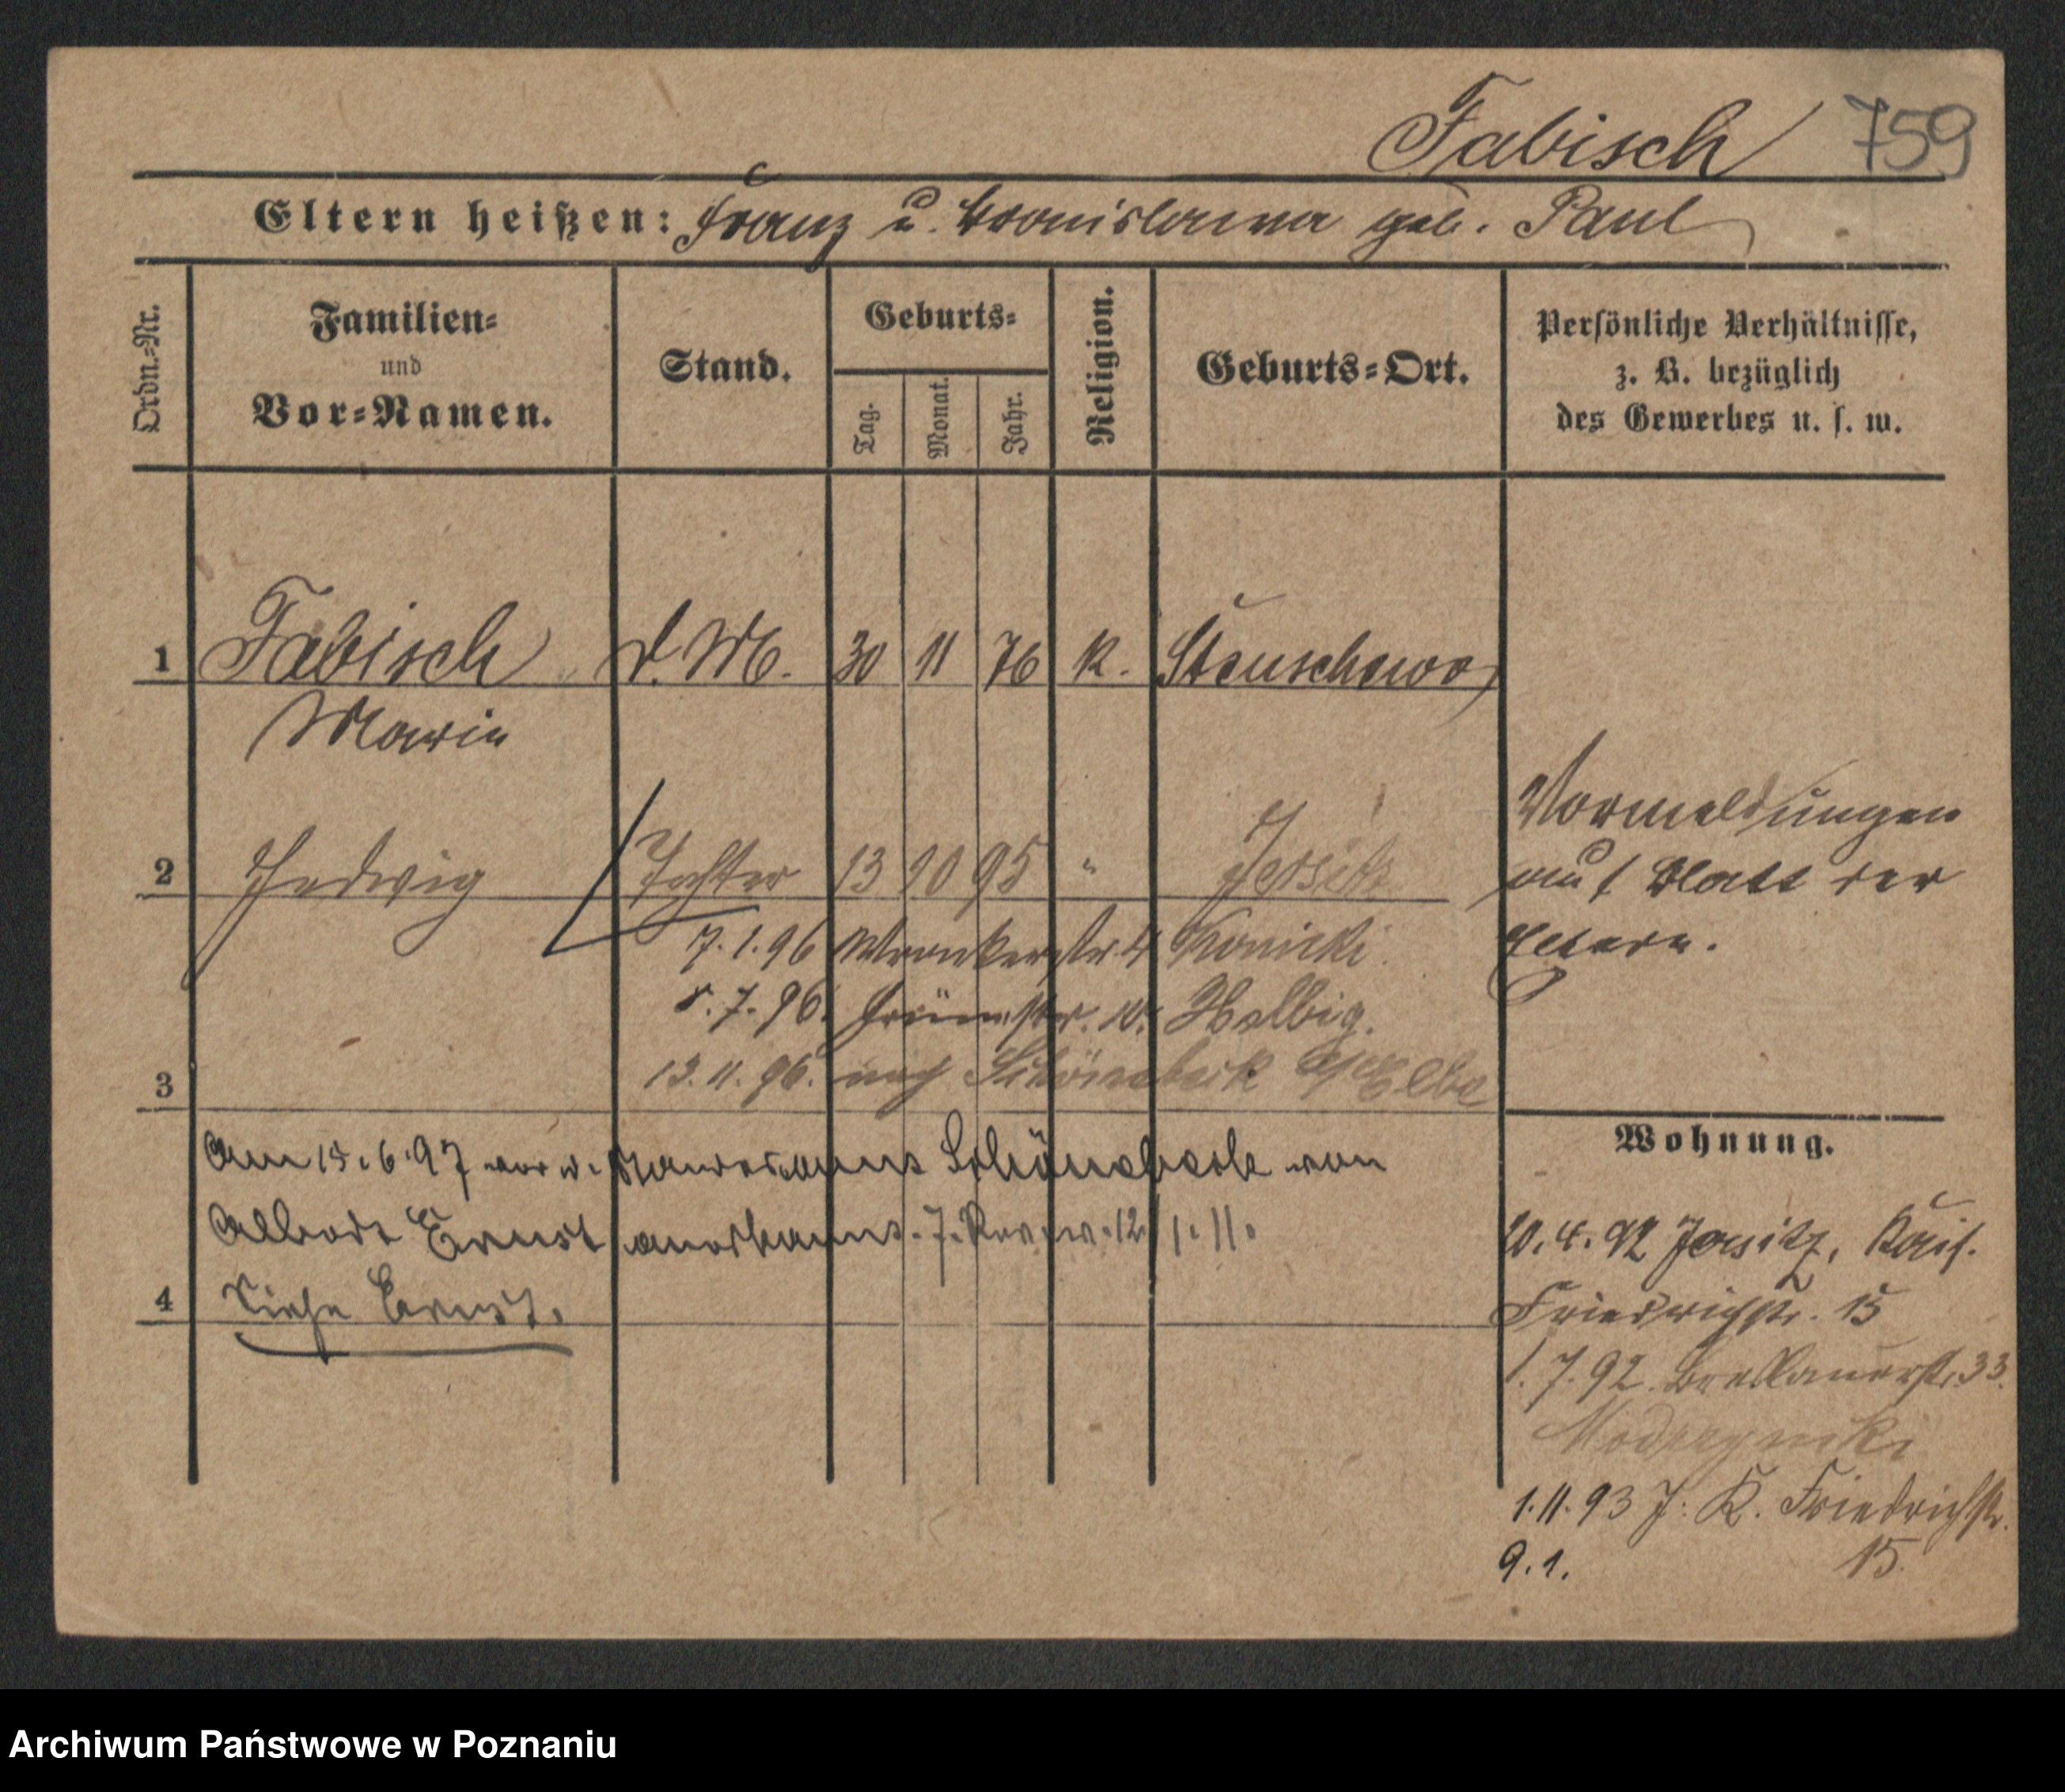 Fabisch 759
Eltern heißen: Franz u. Bronislawa geb. Paul
Ordn.-Nr.
Familien-
und
Vor-Namen.
Stand.
Geburts-
Tag.
Monat.
Jahr.
Religion.
Geburts-Ort.
Persönliche Verhältnisse,
z. B. bezüglich
des Gewerbes u. s. w.
1 Fabisch d. M. 30 11 76 K. Stenschewo
Marie
2 Hedwig Tochter 13 10 95 " Jersitz
Vormeldungen
auf Blatt der
Eltern.
7.1.96 Wronkerstr. 4 Konicki.
8.7.96. Grünestr. 10. Helbig.
3
13.11.96. nach Schönebeck a/Elbe
Am 15.6.97 vor d. Standesamt Schönebeck von
Albert Ernst anerkannt. 7. Rev. v. 12. 1. 11.
4 Siehe Ernst.
Wohnung.
20.4.92 Jersitz, Kais.
Friedrichstr. 15
1.7.92. 33.
1.11.93 J. K. Friedrichstr.
9.1. 15.
Archiwum Państwowe w Poznaniu